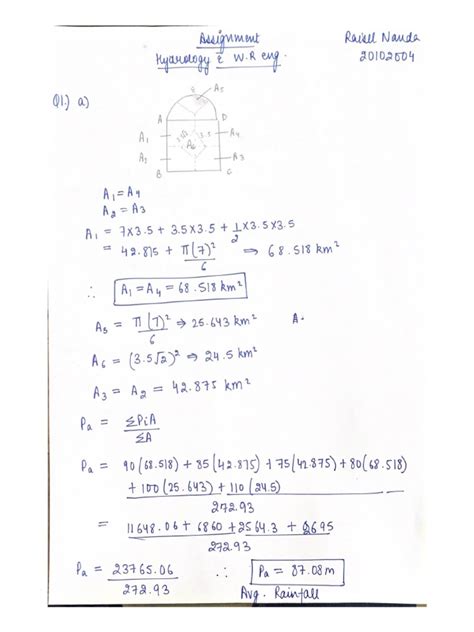 Assignment
Hydrology & W.R eng.
Raisell Nanda
20102004
Q1.) a)
E
A5
A
D
A1
3.5
3.5
A4
A6
A2
A3
B
C
A1 = A4
A2 = A3
A1 = 7x3.5 + 3.5x3.5 + 1/2 x3.5x3.5
= 42.875 + π(7)²/6 ⇒ 68.518 km²
∴ A1 = A4 = 68.518 km²
A5 = π(7)²/6 ⇒ 25.643 km² A.
A6 = (3.5√2)² ⇒ 24.5 km²
A3 = A2 = 42.875 km²
Pa = ΣPiA/ΣA
Pa = 90(68.518) + 85(42.875) + 75(42.875) + 80(68.518)
+ 100(25.643) + 110(24.5)
272.93
= 11648.06 + 6860 + 2564.3 + 2695
272.93
Pa = 23765.06/272.93 ∴ Pa = 87.08m
Avg. Rainfall